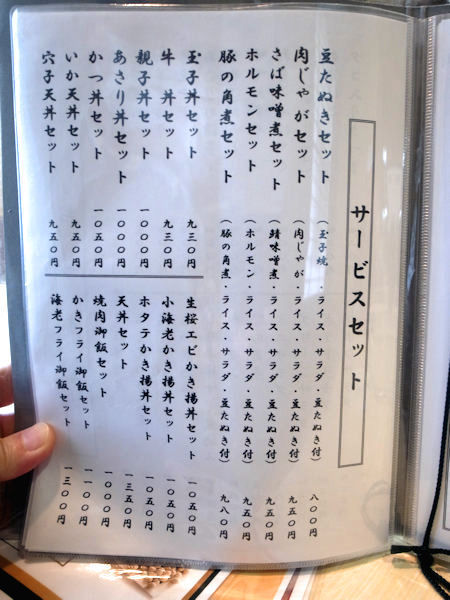 サービスセット
豆たぬきセット（玉子焼・ライス・サラダ・豆たぬき付）八〇〇円
肉じゃがセット（肉じゃが・ライス・サラダ・豆たぬき付）九五〇円
さば味噌煮セット（鯖味噌煮・ライス・サラダ・豆たぬき付）九五〇円
ホルモンセット（ホルモン・ライス・サラダ・豆たぬき付）九五〇円
豚の角煮セット（豚の角煮・ライス・サラダ・豆たぬき付）九八〇円
玉子丼セット 九三〇円
牛丼セット 九三〇円
親子丼セット 一〇〇〇円
あさり丼セット 一〇〇〇円
かつ丼セット 一〇五〇円
いか天丼セット 九五〇円
穴子天丼セット 九五〇円
生桜エビかき揚丼セット 一〇五〇円
小海老かき揚丼セット 一〇五〇円
ホタテかき揚丼セット 一〇五〇円
天丼セット 一三五〇円
焼肉御飯セット 一〇〇〇円
かきフライ御飯セット 一一〇〇円
海老フライ御飯セット 一三〇〇円